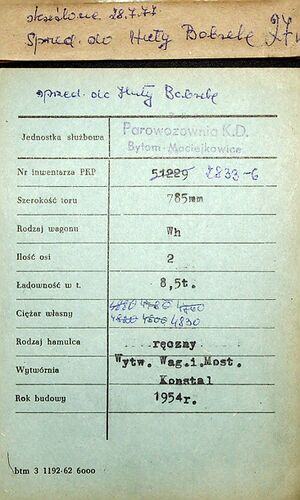 skreślono 28.7.77
Sprzed. do Huty Bobrek
sprzed. do Huty Bobrek
Jednostka służbowa
Parowozownia K.D.
Bytom-Maciejkowice
Nr inwentarza PKP 51229 2833-6
Szerokość toru 785mm
Rodzaj wagonu Wh
Ilość osi 2
Ładowność w t. 8,5t.
Ciężar własny
4830
Rodzaj hamulca ręczny
Wytwórnia Wytw. Wag.i.Most.
Konstal
Rok budowy 1954r.
btm 3 1192-62 6000